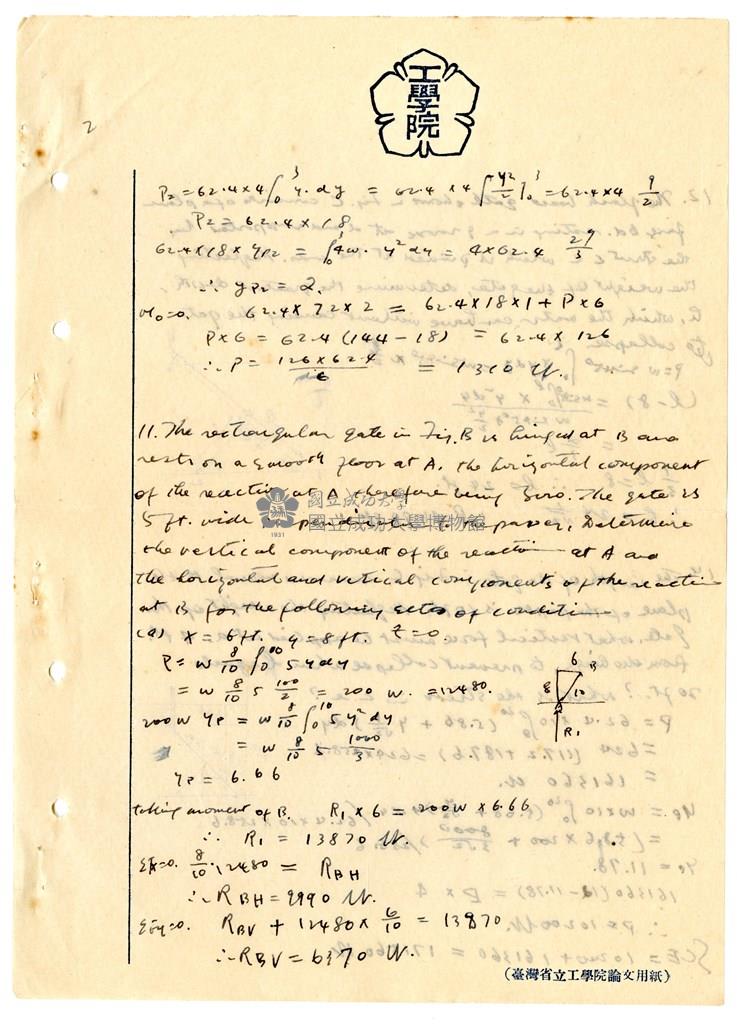 2
工學院
P2 = 62.4×4∫₀³ y·dy = 62.4 ×4 [y²/2]₀³ = 62.4×4 9/2
P2 = 62.4×18
62.4×18×yP2 = ∫₀³ 4w·y²dy = 4×62.4 27/3
∴ yP2 = 2.
M0=0. 62.4×72×2 = 62.4×18×1 + P×6
P×6 = 62.4 (144-18) = 62.4×126
∴ P = 126×62.4/6 = 1310 lb.
11. The rectangular gate in Fig. B is hinged at B and
rests on a smooth floor at A. the horizontal component
of the reaction at A therefore being zero. The gate is
5 ft. wide to the paper, Determine
the vertical component of the reaction at A and
the horizontal and vertical components of the reaction
at B for the following sets of condition
(a) x = 6 ft. y = 8 ft. z = 0.
P = w 8/10 ∫₀¹⁰ 5 y dy
= w 8/10 5 100/2 = 200 w. = 12480.
200w yP = w 8/10 ∫₀¹⁰ 5 y² dy
= w 8/10 5 1000/3
yP = 6.66
6 B
8 10
A
R1
taking moment of B. R1 × 6 = 200w × 6.66
∴ R1 = 13870 lb.
ΣFx=0. 8/10·12480 = RBH
∴ RBH = 9990 lb.
ΣFy=0. RBV + 12480 × 6/10 = 13870
∴ RBV = 6370 lb.
(臺灣省立工學院論文用紙)
國立成功大學
國立成功大學博物館
1931